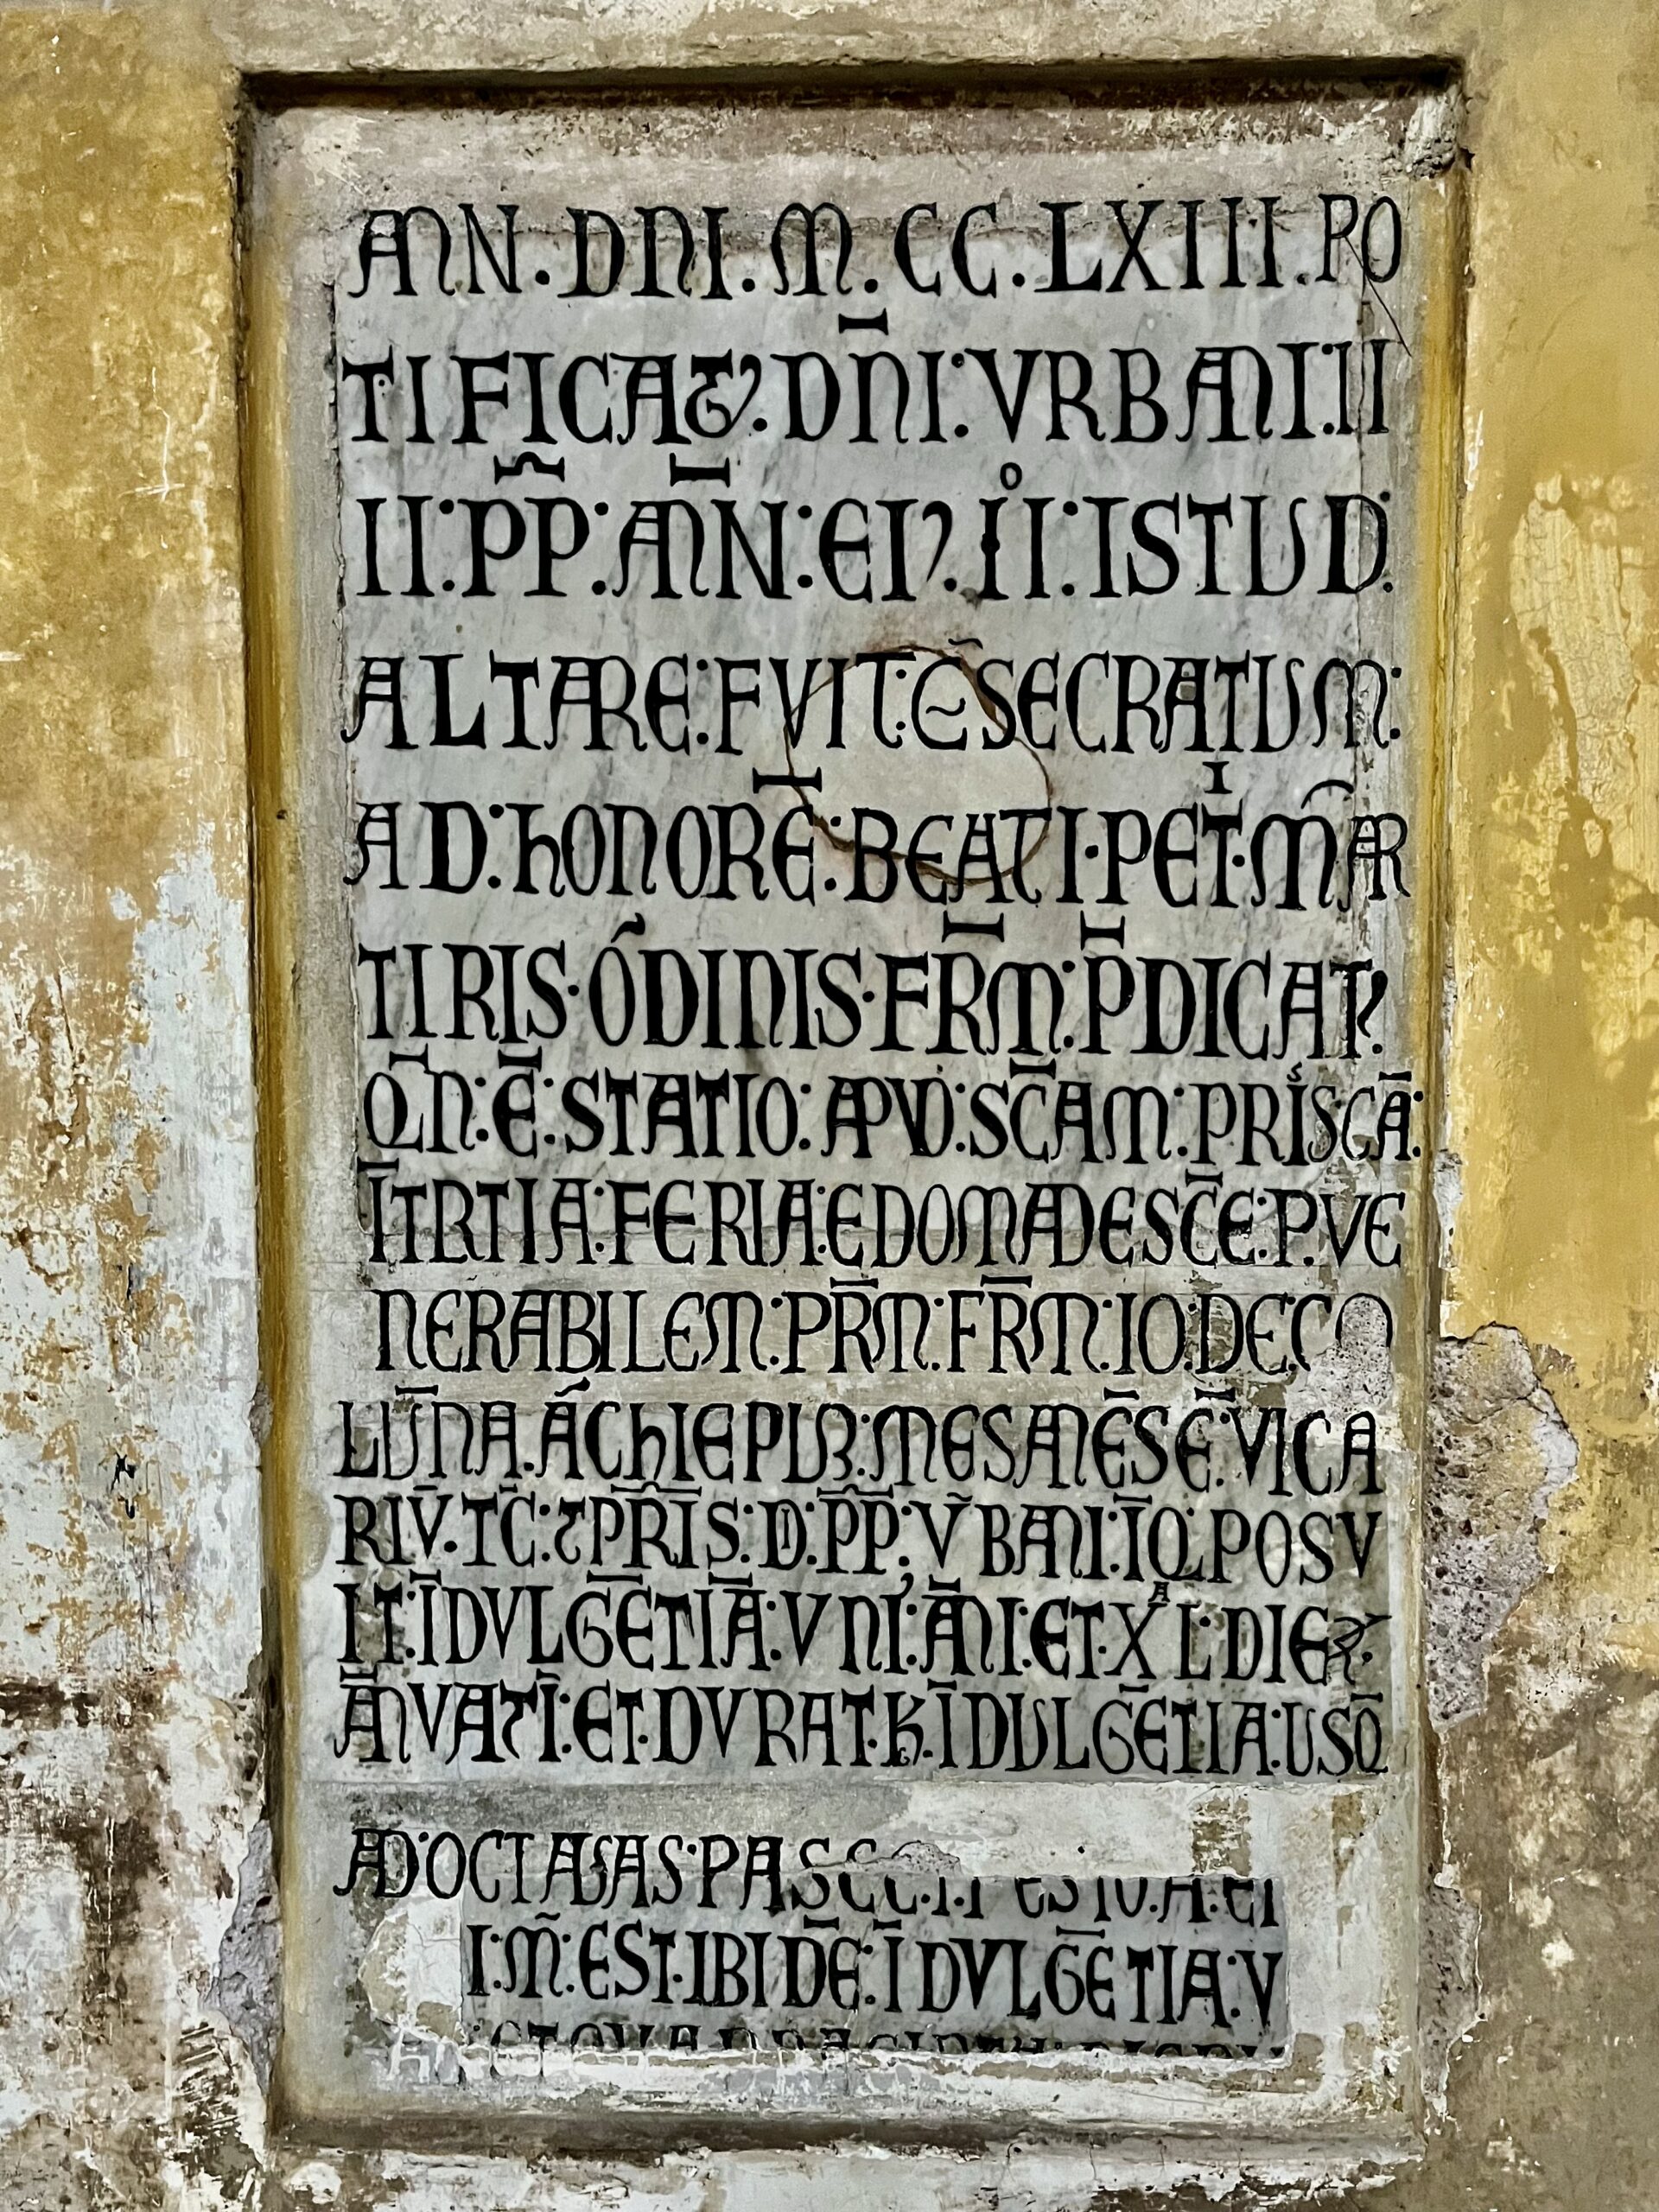 AN · DNI · M · CC · LXIII · PO
TIFICAT · DN̄I : VRBANI : II
II : P̄P̄ : ĀN : EI' · II° : ISTUD :
ALTARE : FVIT : C̄SECRATUM :
AD : hONORĒ : BEATI · PET̍ · M̄AR
TIRIS · ÓDINIS · FR̄M : P̄DICAT' ·
Q̄N : Ē : STATIO : APVD : SC̄AM : PRISCĀ :
ĪTRTIA : FERIA : EDOMADE SC̄E : P · VE
NERABILEM : PR̄M : FR̄M : IO : DE : CO
LŪNA · ÁChIEPUM : MESANĒSĒ : VICA
RIV̄ · TC̄ : ⁊ PR̄ĪS : D : P̄P̄ : V̄BANI : ĪQ POSV
IT : ĪDVLGĒTIĀ : VNI' : ĀNI : ET · XᴬL : DIEꝜ
ĀNVATĪ : ET · DVRAT · h̄ · ĪDULGĒTIA : USQ̄
AD : OCTABAS · PASC
I · M̄ : EST · IBIDĒ : ĪDVLGĒTIA : V